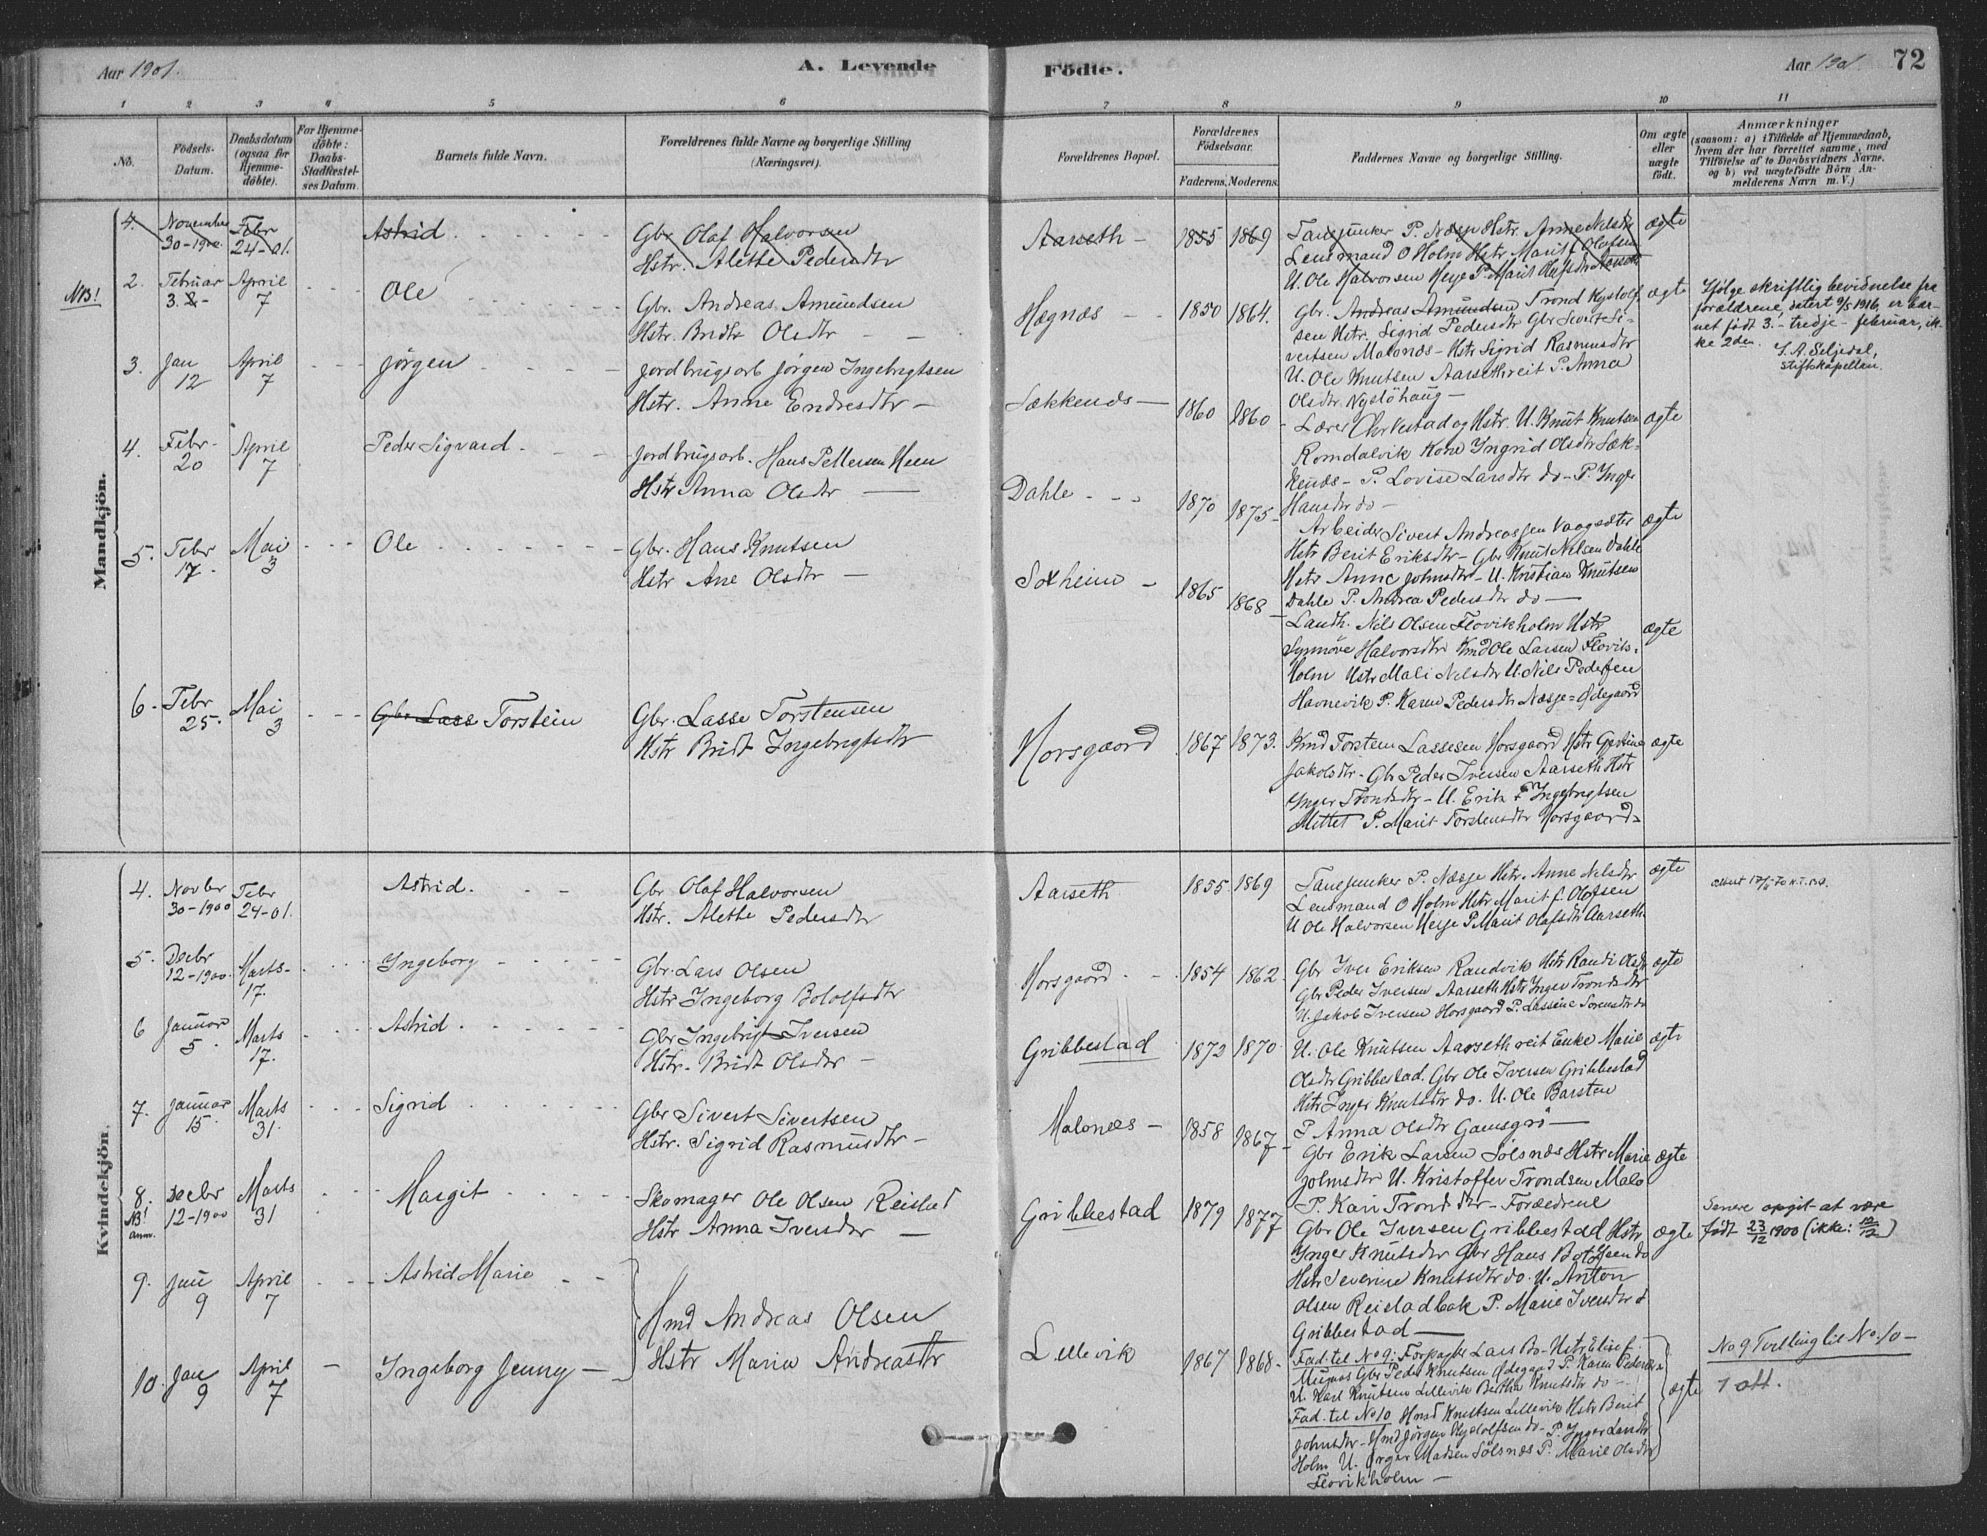 Aar 1901.
A. Levende
Födte.
Aar 1901.
72
1 2 3 4 5 6 7 8 9 10 11
No.
Födsels-Datum.
Daabsdatum (ogsaa for Hjemme-döbte).
For Hjemme-döbte: Daabs-Stadfæstel-ses Datum.
Barnets fulde Navn.
Forældrenes fulde Navne og borgerlige Stilling (Næringsvei).
Forældrenes Bopæl.
Forældrenes Födselsaar.
Faderens. Moderens.
Faddernes Navne og borgerlige Stilling.
Om ægte eller uægte födt.
Anmærkninger
(saasom: a) i Tilfælde af Hjemmedaab, hvem der har forrettet samme, med Tilföielse af to Daabsvidners Navne. og b) ved uægtefödte Börn An-melderens Navn m. V.)
Mandkjön.
4. November 30-1900 Febr 24-01. Astrid
Gbr Olaf Halvorsen
Hstr. Alette Pedersdtr
Aarseth 1855 1869
Tanejunker P. Næsje Hstr Anne Nilsdtr
Lensmand O Holm Hstr Marit f. Olafsen
U. Ole Halvorsen Hesje P. Marit Olafsdtr Aarseth
ægte
NB!
2. Februar 3. April 7 Ole
Gbr. Andreas Amundsen
Hstr. Bridtr Olsdtr
Hægnæs 1850 1864.
Gbr. Andreas Amundsen Trond Kystolf
sen Hstr. Sigrid Pedersdtr Gbr Sivert Si-
vertsen Malonæs - Hstr Sigrid Rasmusdtr
U. Ole Knutsen Aarsethreit P. Anna
Olsdtr Nyslöhaug -
ægte
Ifølge skriftlig bevidnelse fra
forældrene, datert 9/5 1916, er bar-
net født 3. - tredje - februar, ik-
ke 2den.
S. A. Seljedal,
stiftskapellan.
3. Jan 12 April 7 Jörgen
Jordbrugsarb Jörgen Ingebrigtsen
Hstr. Anne Endresdtr -
Sækkenæs - 1860 1860
Lærer Ørkestad og Hstr. U. Knut Knutsen
Romdalvik Kone Ingrid Olsdtr Sæk-
kenæs - P. Lovise Larsdtr do - P. Inger
Hansdtr do -
ægte
4. Febr. 20 April 7 Peder Sigvard
Jordbrugsarb. Hans Pettersen Heen
Hstr Anna Olsdtr
Dahle 1870 1875
Arbeider Sivert Andreassen Vaagsæter
Hstr Berit Eriksdtr - Gbr Knut Nilsen Dahle
Hstr Anne Johnsdtr - U. Kristian Knutsen
Dahle P. Andrea Pedersdtr do -
ægte
5. Febr 17. Mai 3 Ole
Gbr. Hans Knutsen
Hstr Ane Olsdtr -
Solheim - 1865 1868
Landh. Nils Olsen Flovikholm Hstr
Synnöve Halvorsdtr Kmd Ole Larsen Floviks-
Holm Hstr Mali Nilsdtr U. Nils Pedersen
Havnevik P. Karen Pedersdtr Næsje=Ødegaard
ægte
6. Febr 25. Mai 3 Gbr Lass Torstein
Gbr. Lasse Torstensen
Hstr Bridt Ingebrigtsdtr
Horsgaard 1867 1873.
Kmd Torstein Lassesen Horsgaard Hstr
Jakobsdtr - Gbr Peder Iversen Aarseth Hstr
Inger Trondsdtr - U. Erik Ingebrigtsen
Mittet P. Marit Torstensdtr Horsgaard -
ægte
Kvindekjön.
4. Novbr 30-1900 Febr 24-01. Astrid.
Gbr Olaf Halvorsen
Hstr. Alette Pedersdtr
Aarseth 1855 1869
Tanejunker P. Næsje Hstr. Anne Nilsdtr
Lensmand O Holm Hstr Marit f. Olafsen
U Ole Halvorsen Hesje P Marit Olafsdtr Aarseth.
ægte
5. Decbr 12-1900. Marts 17. Ingeborg
Gbr. Lars Olsen
Hstr Ingeborg Bololfsdtr
Horsgaard 1854 1862
Gbr Iver Eriksen Randvik Hstr Randi Olsdtr
Gbr Peder Iversen Aarseth Hstr Inger Trondsdtr
U. Jakob Iversen Horsgaard P. Lassine Sorensdtr do
ægte
6 Januar 5. Marts 17. Astrid
Gbr Ingebrigt Iversen
Hstr. Bridt Olsdtr -
Gribbestad 1872 1870
U. Ole Knutsen Aarsethreit Enke Marie
Olsdtr Gribbestad. Gbr Ole Iversen Gribbestad
Hstr Inger Knutsdtr do. U. Ole Barsten
P Anna Olsdtr Gamsgrö -
ægte
7. Januar 15. Marts 31. Sigrid
Gbr Sivert Sivertsen
Hstr. Sigrid Rasmusdtr -
Malonæs - 1858 1867
Gbr Erik Larsen Sölsnæs Hstr Marie
Johnsdtr U. Kristoffer Trondsen Malo
P. Kari Trondsdtr - Forældrene
ægte
8. NB! anm. Decbr 12-1900 Marts 31 Margit
Skomager Ole Olsen Reistad
Hstr Anna Iversdtr -
Gribbestad 1879 1877
Gbr Ole Iversen Gribbestad Hstr
Inger Knutsdtr Gbr Hans Botolfsen do
Hstr Severine Knutsdtr do. U. Anton
Olsen Reistadbak P. Marie Iversdtr
Gribbestad -
ægte
Senere opgit at være
født 23/12 1900 (ikke: 12/12)
9. Jan 9 April 7 Astrid Marie
10. Jan 9 April 7 Ingeborg Jenny -
Hmd Andreas Olsen
Hstr Maria Andreasdtr
Lillevik 1867 1868
Fad. til No 9: Forpagter Lars Bo - Hstr Elise f.
Gbr Peder Knutsen Ødegaard P. Karen Pedersdtr
U. Karl Knutsen Lillevik Bertha Knutsdtr do -
Fad. til No 10 Hmd Knutsen Lillevik Hstr Berit
Johnsdtr - Hmd Jörgen Kystolfsen do - P. Inger Larsdtr
Holm U. Örger Madsen Sölsnæs P. Marie Olsdtr
Flovikholm -
ægte
No 9 Tvilling til No. 10 -
1 att.